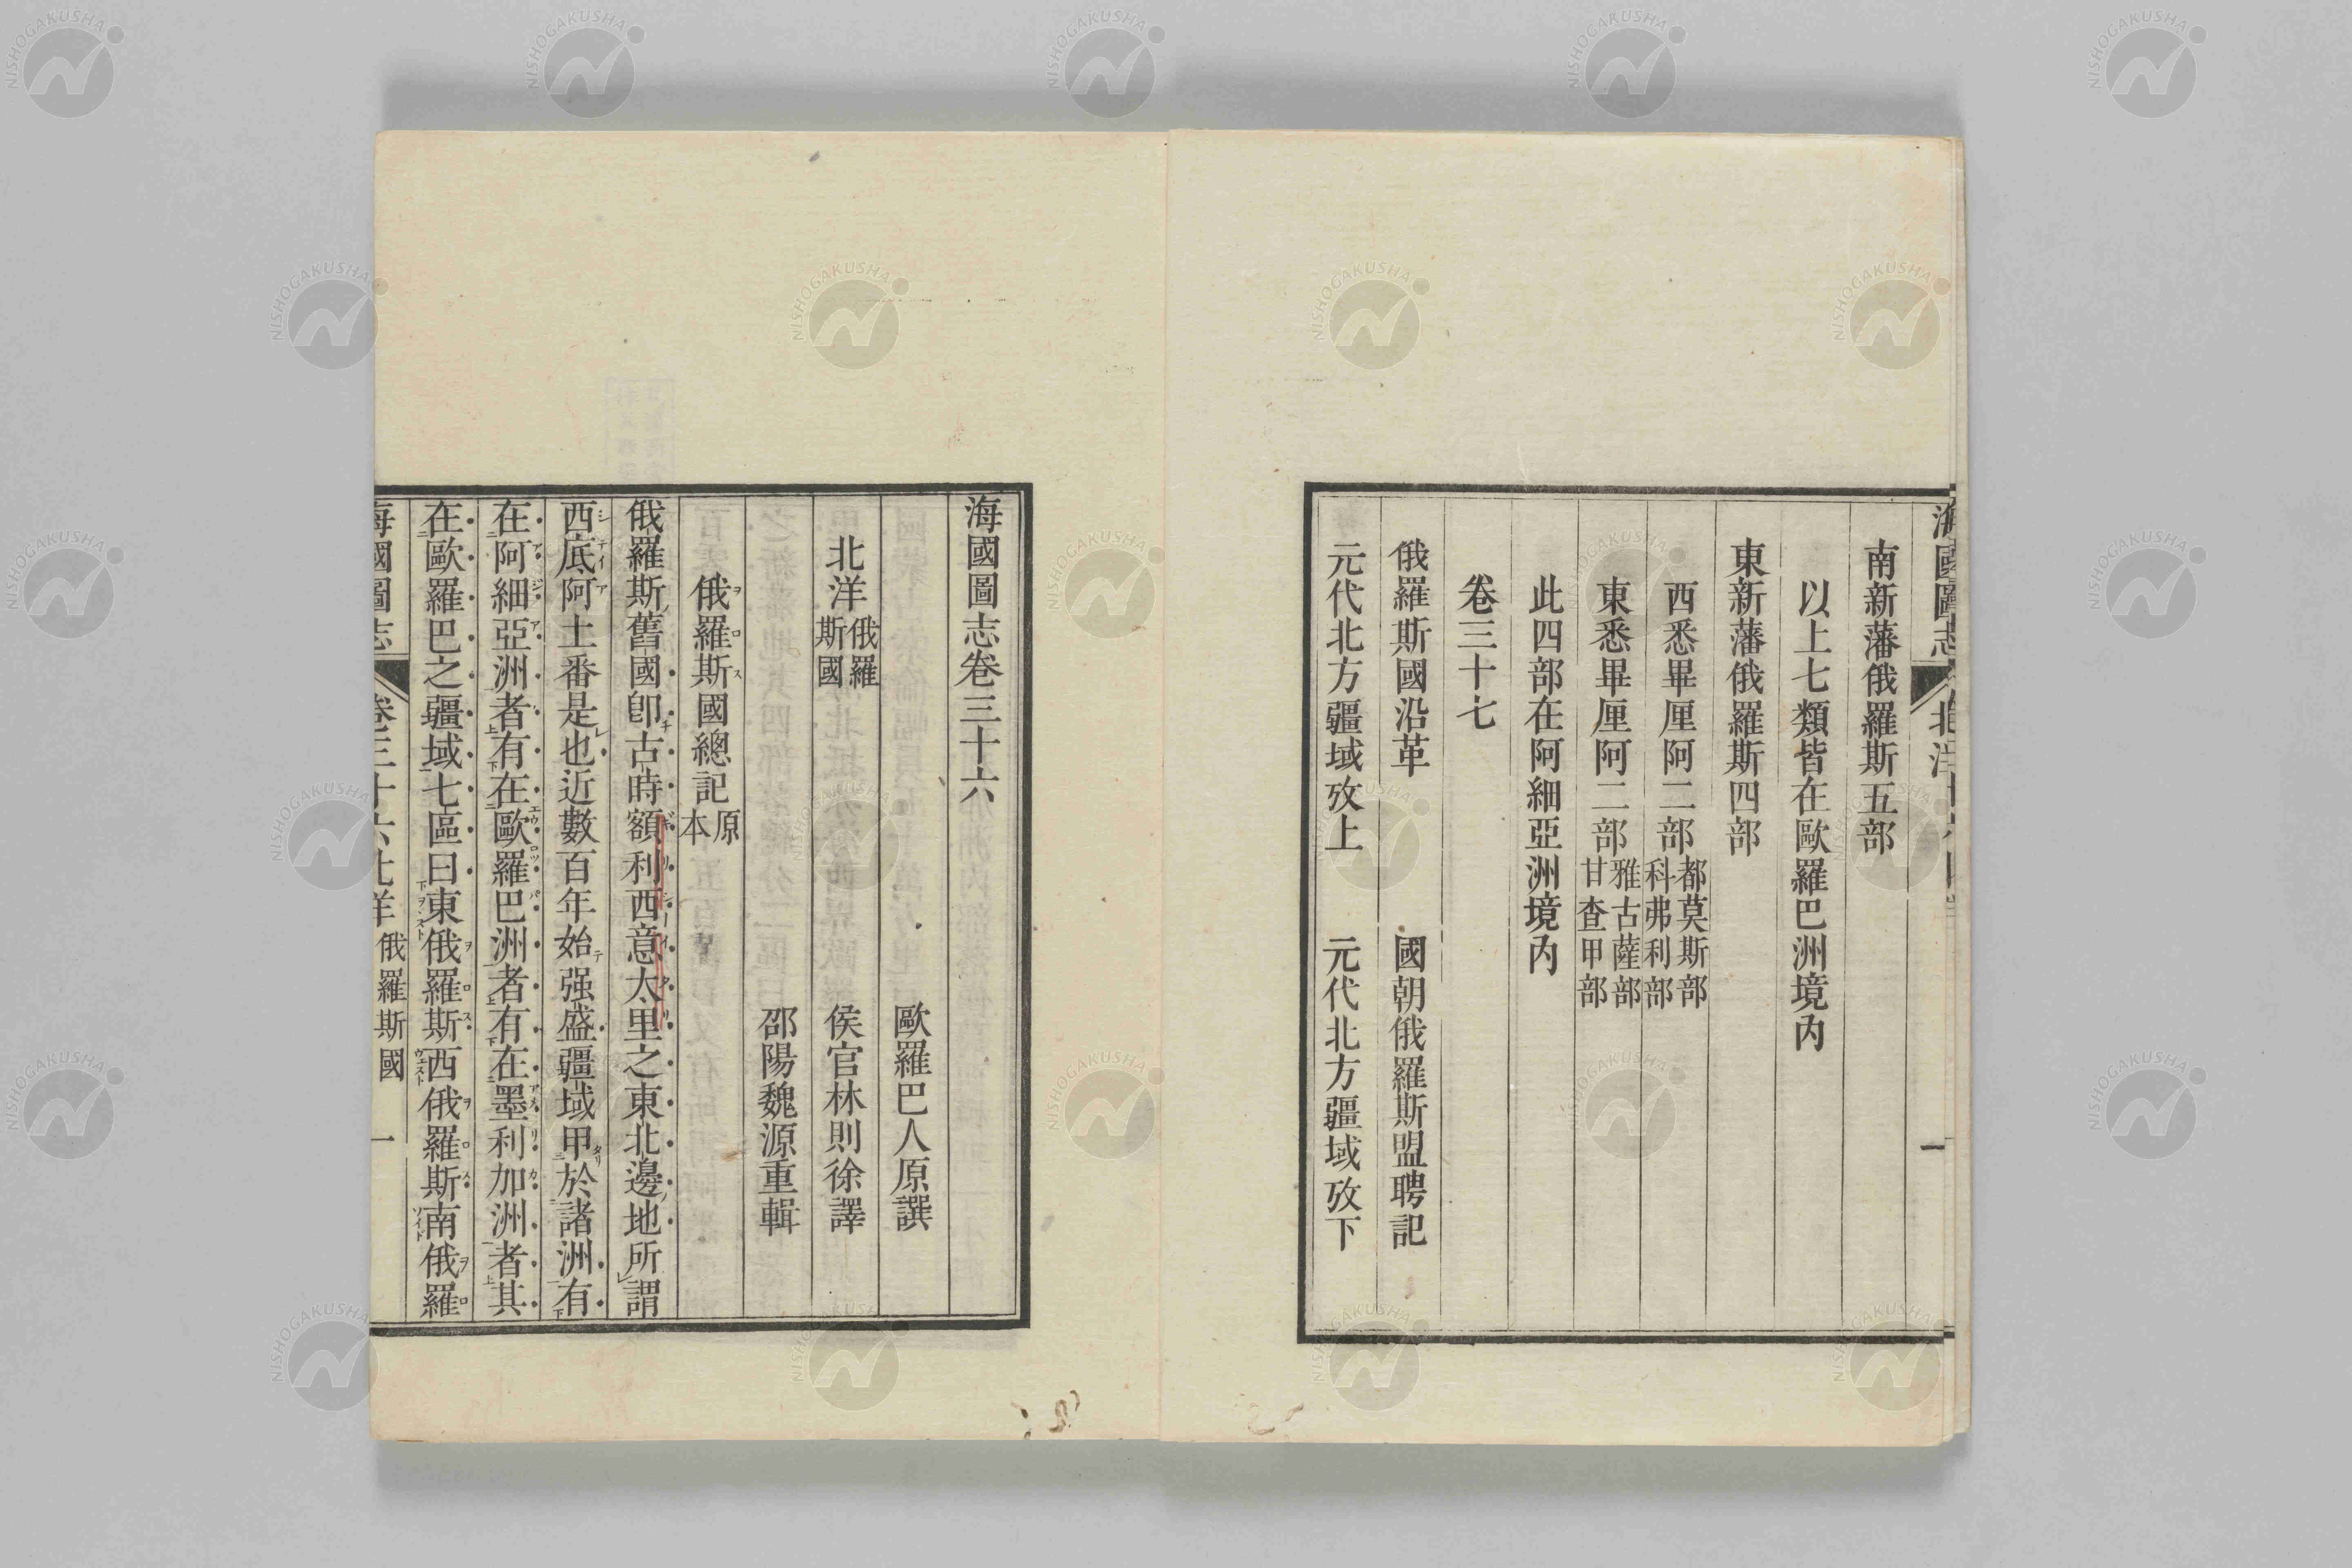 南新藩俄羅斯五部
以上七類皆在歐羅巴洲境內
東新藩俄羅斯四部
西悉畢厘阿二部都莫斯部科弗利部
東悉畢厘阿二部雅古薩部甘查甲部
此四部在阿細亞洲境內
卷三十七
俄羅斯國沿革 國朝俄羅斯盟聘記
元代北方疆域攷上 元代北方疆域攷下
海國圖志卷三十六
歐羅巴人原譔
北洋俄羅斯國 侯官林則徐譯
邵陽魏源重輯
俄羅斯國總記原本
俄羅斯舊國卽古時額利西意太里之東北邊地所謂
西底阿土番是也近數百年始强盛疆域甲於諸洲有
在阿細亞洲者有在歐羅巴洲者有在墨利加洲者其
在歐羅巴之疆域七區曰東俄羅斯西俄羅斯南俄羅
海國圖志 卷三十六北洋 俄羅斯國 一
NISHOGAKUSHA